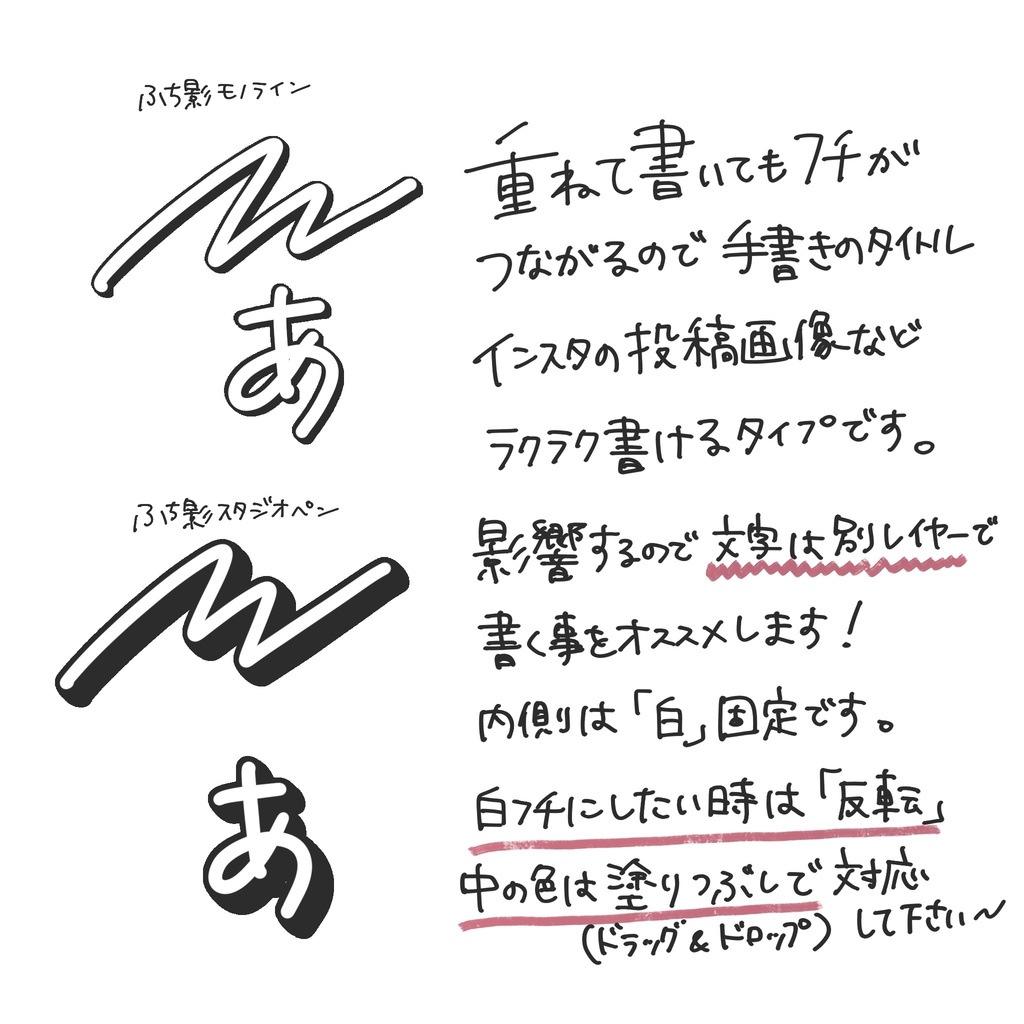 ふち影モノライン
あ
重ねて書いてもフチが
つながるので手書きのタイトル
インスタの投稿画像など
ラクラク書けるタイプです。
ふち影スタジオペン
あ
影響するので文字は別レイヤーで
書く事をオススメします！
内側は「白」固定です。
白フチにしたい時は「反転」
中の色は塗りつぶしで対応
(ドラッグ&ドロップ)して下さい〜